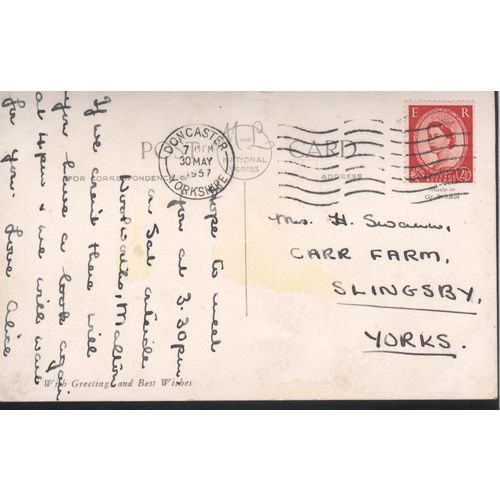 POST CARD
M B
AND
NATIONAL
SERIES
FOR CORRESPONDENCE
ADDRESS
DONCASTER
7 15 PM
30 MAY
1957
YORKSHIRE
E R
POSTAGE REVENUE
2½
Made in
Gt. Britain
Hope to meet
you at 3.30pm
on Sat outside
Woolworths, Malton
If we can't there will
you have a look again
at 4pm & we will wait
for you. Love Alice
Mrs. H. Swann,
CARR FARM,
SLINGSBY,
YORKS.
With Greetings and Best Wishes